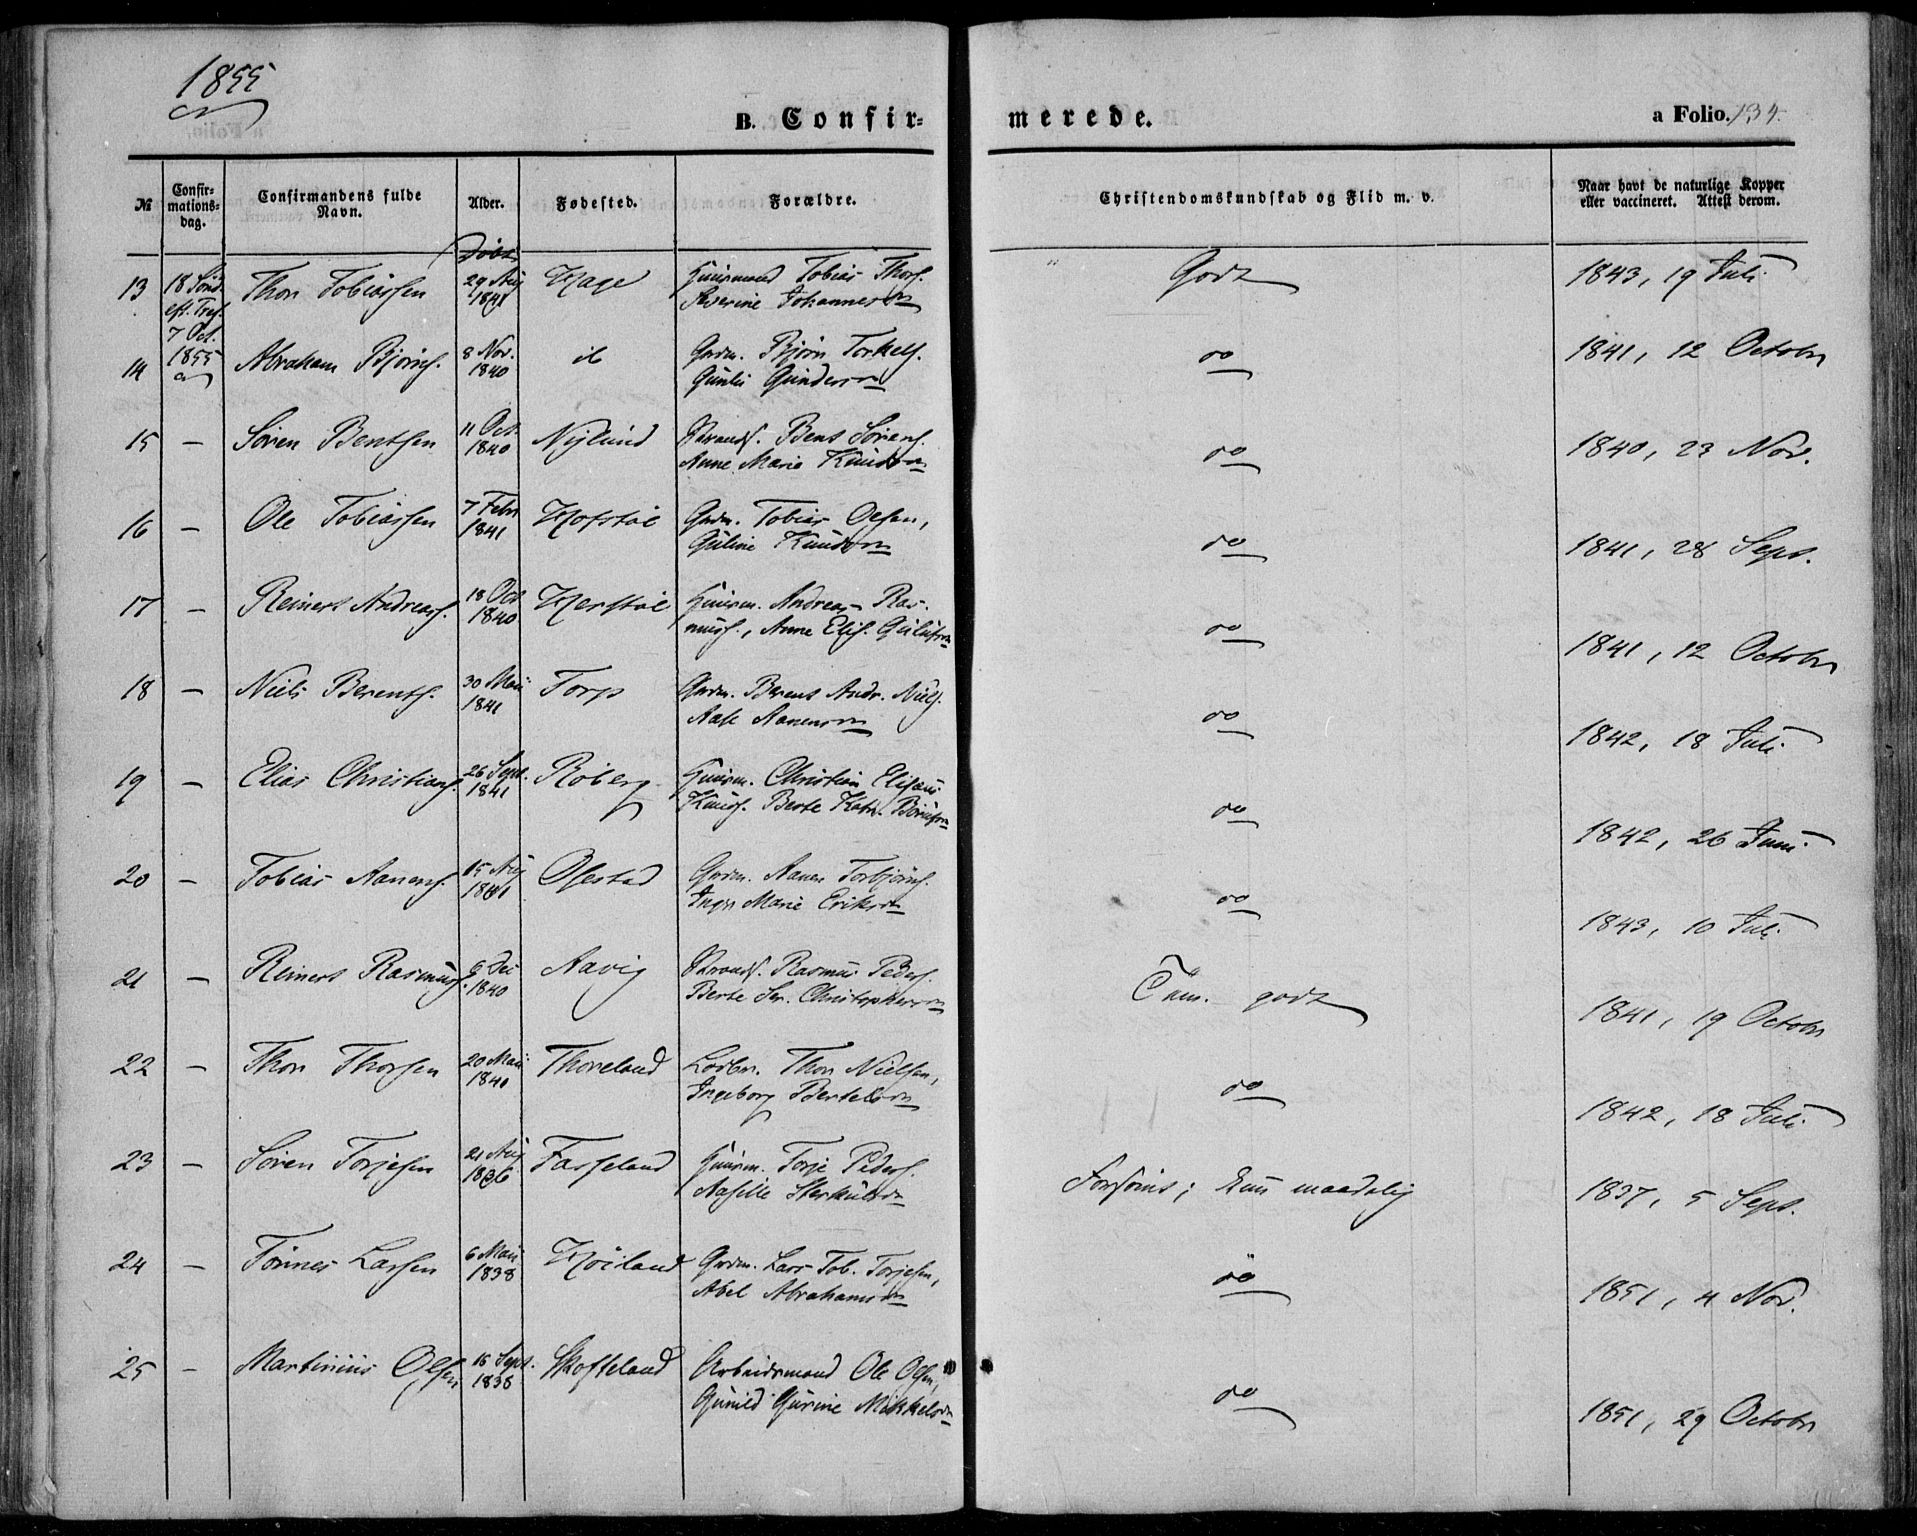 1855
B. Confirmerede.
a Folio. 134.
№
Confirmationsdag.
Confirmandens fulde Navn.
Alder.
Fødested.
Forældre.
Christendomskundskab og Flid m. v.
Naar havt de naturlige Kopper eller vaccineret. Attest derom.
Døbt
13 18 Sønd. eft. Tref. 7 Oct. 1855 Thor Tobiassen 29 Aug 1841 Hage Huusmand Tobias Thors. Severine Johannesdr Godt 1843, 19 Juli
14 Abraham Bjørns. 8 Nov. 1840 ib Grdm. Bjørn Torkels. Gunder do 1841, 12 Octobr
15 – Søren Bentsen 11 Oct. 1840 Nylund Strands. Bent Sørens. Anne Marie Knudsdr do 1840, 23 Nov.
16 – Ole Tobiassen 7 Febr 1841 Grdm. Tobias Olsen, Guline Knudsdr do 1841, 28 Sept.
17 – Reinert Andreas. 18 Oct 1840 Huusm. Andreas Rasmuss., Anne Elis. do 1841, 12 Octobr
18 – Niels Berents. 30 Mai 1841 Torp Grdm. Berent Andr. Niels. Aase Aanensdr do 1842, 18 Juli
19 – Elias Christians. 26 Sept. 1841 Røberg Huusm. Christian Elisæus Knuds. Berte Katr. do 1842, 26 Juni
20 – Tobias Aanens. 15 Aug 1841 Ofestad Grdm. Aanen Torbjørns. Inger Marie Eriksdr do 1843, 10 Juli
21 – Reinert Rasmuss. 6 Dec 1840 Aavig Strands. Rasmus Peders. Berte Ser. Christophersdr Tem. godt 1841, 19 Octobr
22 – Thor Thorsen 20 Mai 1840 Thoreland Thor Nielsen, Ingeborg Bertelsdr do 1842, 18 Juli
23 – Søren Torjesen 21 Aug 1836 Fasseland Huusm. Torje Peders. Aasille do 1837, 5 Sept.
24 – Tønnes Larsen 6 Mai 1838 Høiland Grdm. Lars Tob. Torjesen, Abel Abrahamsdr do 1851, 4 Nov.
25 – Martinius Olsen 16 Sept. 1838 Skofteland Arbeidsmand Ole Olsen, Gunild Gurine Mikkelsdr do 1851, 29 Octobr